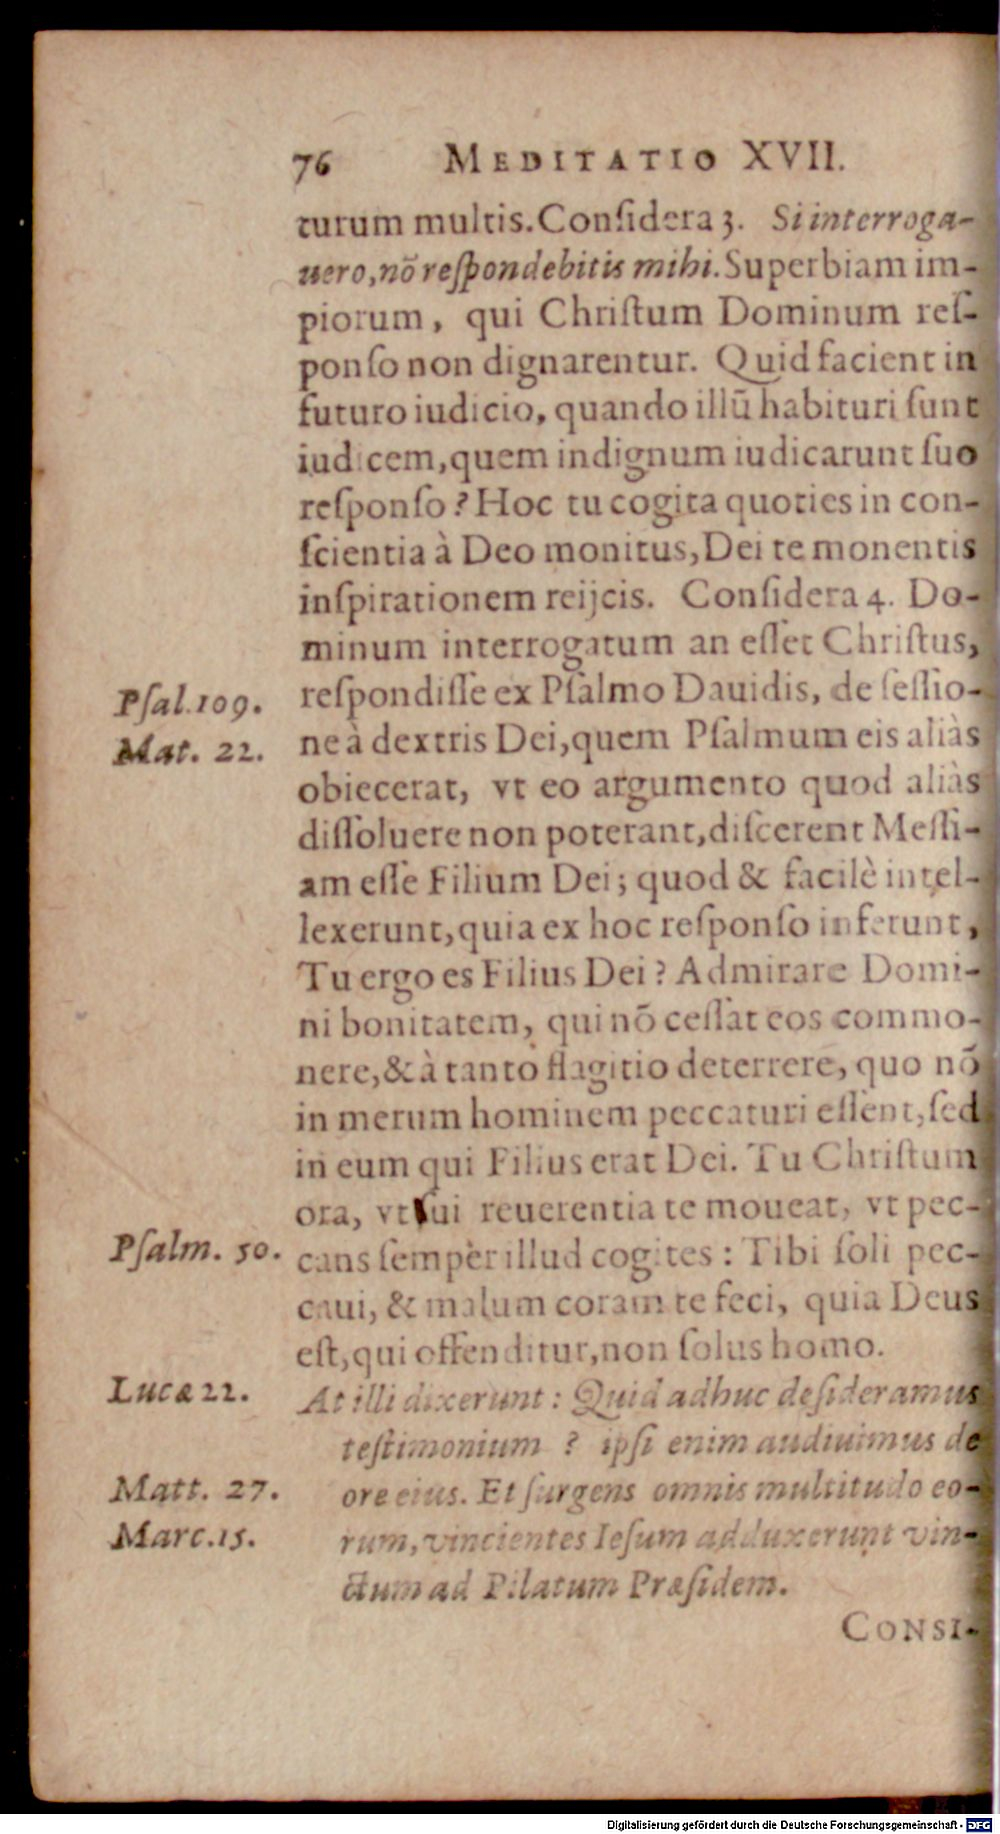 76 MEDITATIO XVII.
turum multis. Conſidera 3. Si interroga-
uero, nõ reſpondebitis mihi. Superbiam im-
piorum, qui Chriſtum Dominum reſ-
ponſo non dignarentur. Quid facient in
futuro iudicio, quando illũ habituri ſunt
iudicem, quem indignum iudicarunt ſuo
reſponſo? Hoc tu cogita quoties in con-
ſcientia à Deo monitus, Dei te monentis
inſpirationem reijcis. Conſidera 4. Do-
minum interrogatum an eſſet Chriſtus,
Pſal. 109. reſpondiſſe ex Pſalmo Dauidis, de ſeſſio-
Mat. 22. ne à dextris Dei, quem Pſalmum eis aliàs
obiecerat, vt eo argumento quod aliàs
diſſoluere non poterant, diſcerent Meſſi-
am eſſe Filium Dei; quod & facilè intel-
lexerunt, quia ex hoc reſponſo inferunt,
Tu ergo es Filius Dei? Admirare Domi-
ni bonitatem, qui nõ ceſſat eos commo-
nere, & à tanto flagitio deterrere, quo nõ
in merum hominem peccaturi eſſent, ſed
in eum qui Filius erat Dei. Tu Chriſtum
ora, vt ſui reuerentia te moueat, vt pec-
Pſalm. 50. cans ſempèr illud cogites: Tibi ſoli pec-
caui, & malum coram te feci, quia Deus
eſt, qui offenditur, non ſolus homo.
Lucæ 22. At illi dixerunt: Quid adhuc deſideramus
teſtimonium? ipſi enim audiuimus de
Matt. 27. ore eius. Et ſurgens omnis multitudo eo-
Marc. 15. rum, vincientes Ieſum adduxerunt vin-
ctum ad Pilatum Præſidem.
CONSI-
Digitalisierung gefördert durch die Deutsche Forschungsgemeinschaft - DFG